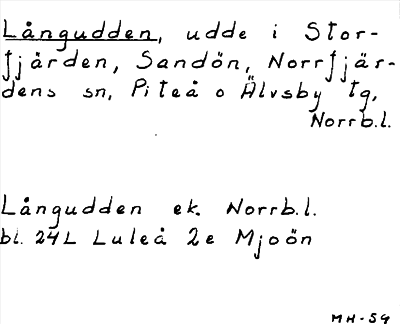 Långudden, udde i Stor-
fjården, Sandön, Norrfjär-
dens sn, Piteå o Älvsby tg,
Norrb.l.
Långudden ek. Norrb.l.
bl. 24L Luleå 2e Mjoön
MH-59